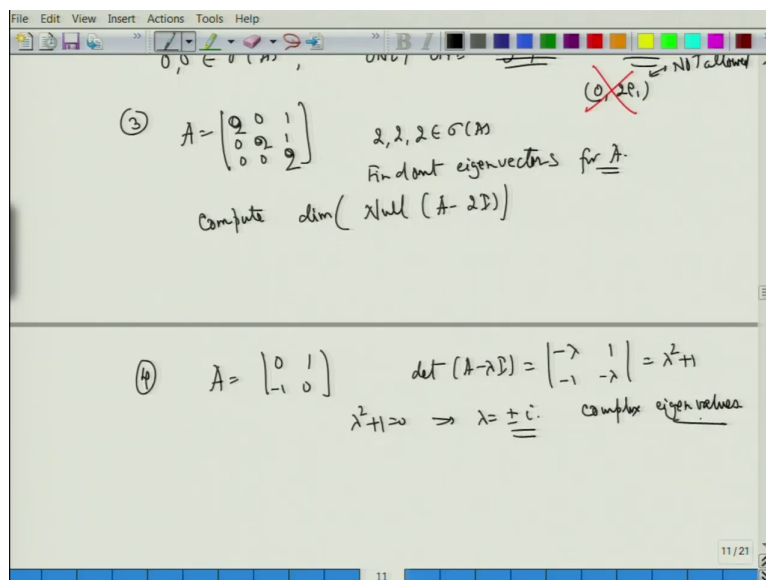 File Edit View Insert Actions Tools Help
0, 0 ∈ σ(A), ONLY ONE NOT allowed
(0, 2e₁)
③ A = [2 0 1
0 2 1
0 0 2] 2, 2, 2 ∈ σ(A)
Find out eigenvectors for A.
Compute dim( Null (A - 2I))
④ A = [0 1
-1 0] det (A-λI) = |-λ 1
-1 -λ| = λ²+1
λ²+1=0 ⇒ λ = ± i. complex eigenvalues
11/21
11